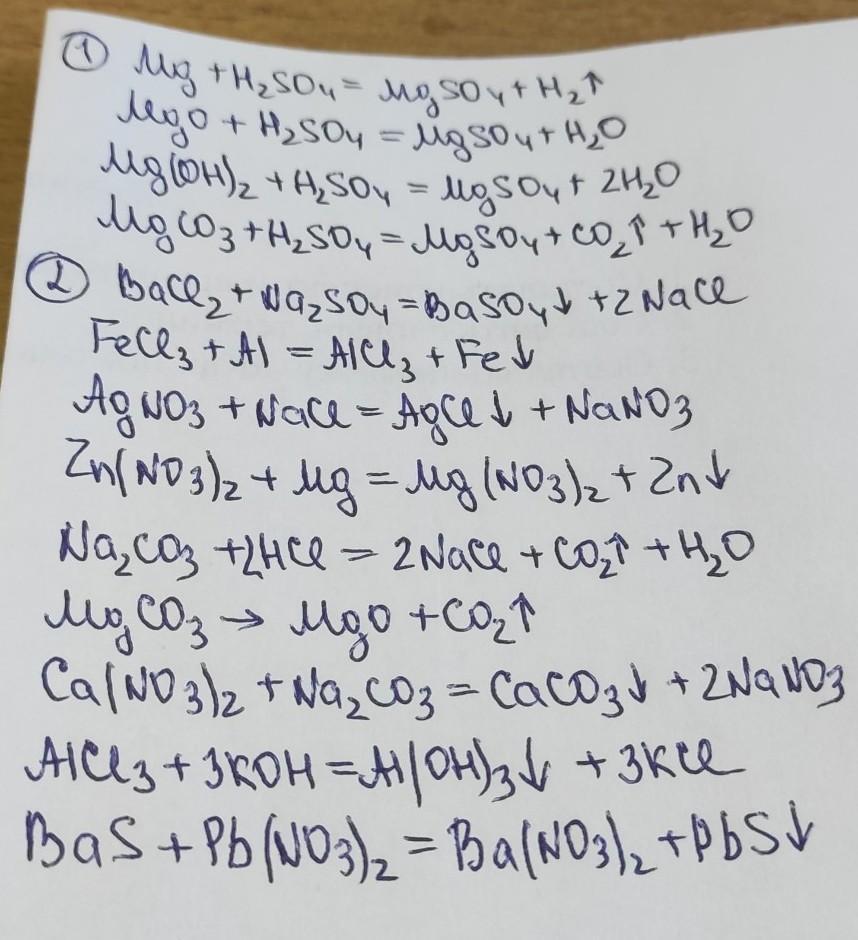 ① Mg + H₂SO₄ = MgSO₄ + H₂↑
MgO + H₂SO₄ = MgSO₄ + H₂O
Mg(OH)₂ + H₂SO₄ = MgSO₄ + 2H₂O
MgCO₃ + H₂SO₄ = MgSO₄ + CO₂↑ + H₂O
② BaCl₂ + Na₂SO₄ = BaSO₄↓ + 2NaCl
FeCl₃ + Al = AlCl₃ + Fe↓
AgNO₃ + NaCl = AgCl↓ + NaNO₃
Zn(NO₃)₂ + Mg = Mg(NO₃)₂ + Zn↓
Na₂CO₃ + 2HCl = 2NaCl + CO₂↑ + H₂O
MgCO₃ → MgO + CO₂↑
Ca(NO₃)₂ + Na₂CO₃ = CaCO₃↓ + 2NaNO₃
AlCl₃ + 3KOH = Al(OH)₃↓ + 3KCl
BaS + Pb(NO₃)₂ = Ba(NO₃)₂ + PbS↓